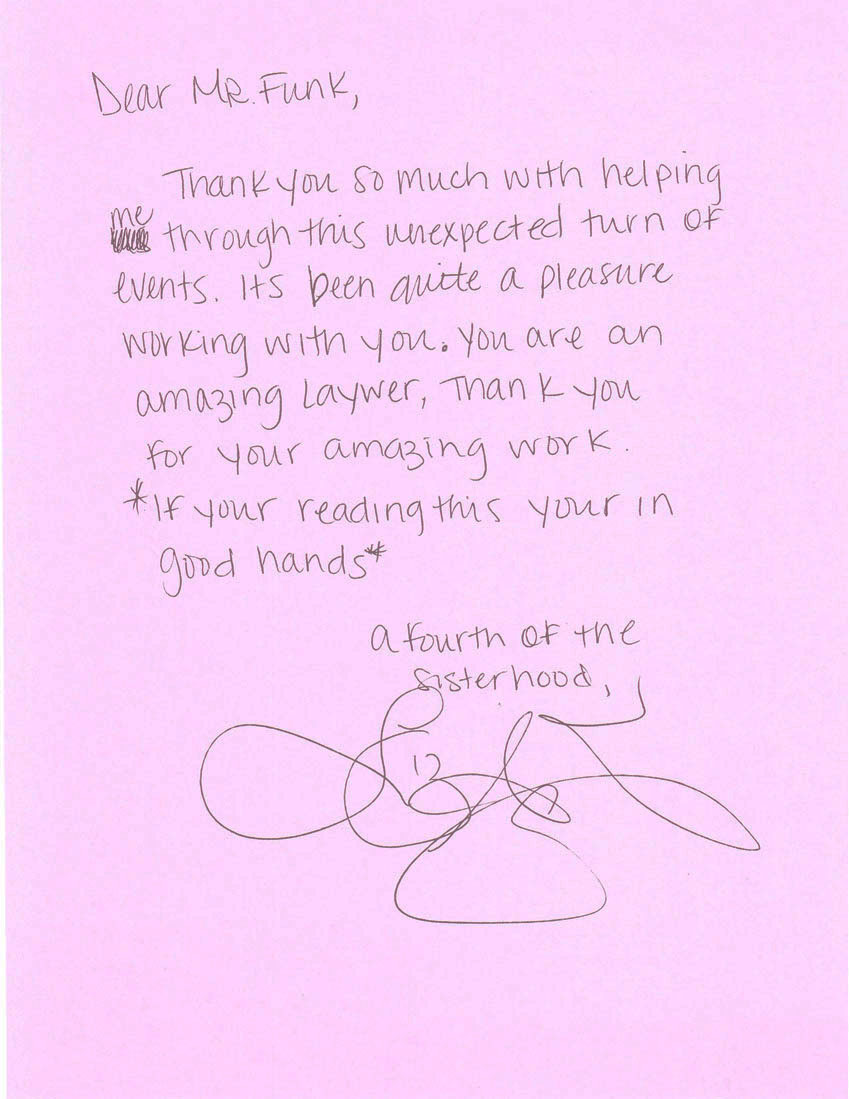 Dear MR. Funk,
Thank you so much with helping
me through this unexpected turn of
events. Its been quite a pleasure
working with you. You are an
amazing Laywer, Thank you
for your amazing work.
*If your reading this your in
good hands*
a fourth of the
sisterhood,
12